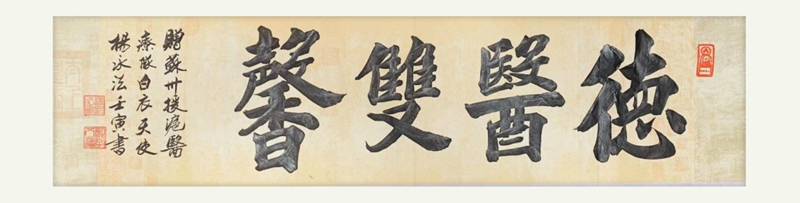 德醫雙馨
贈蘇州援滬醫
療隊白衣天使
楊永法壬寅書